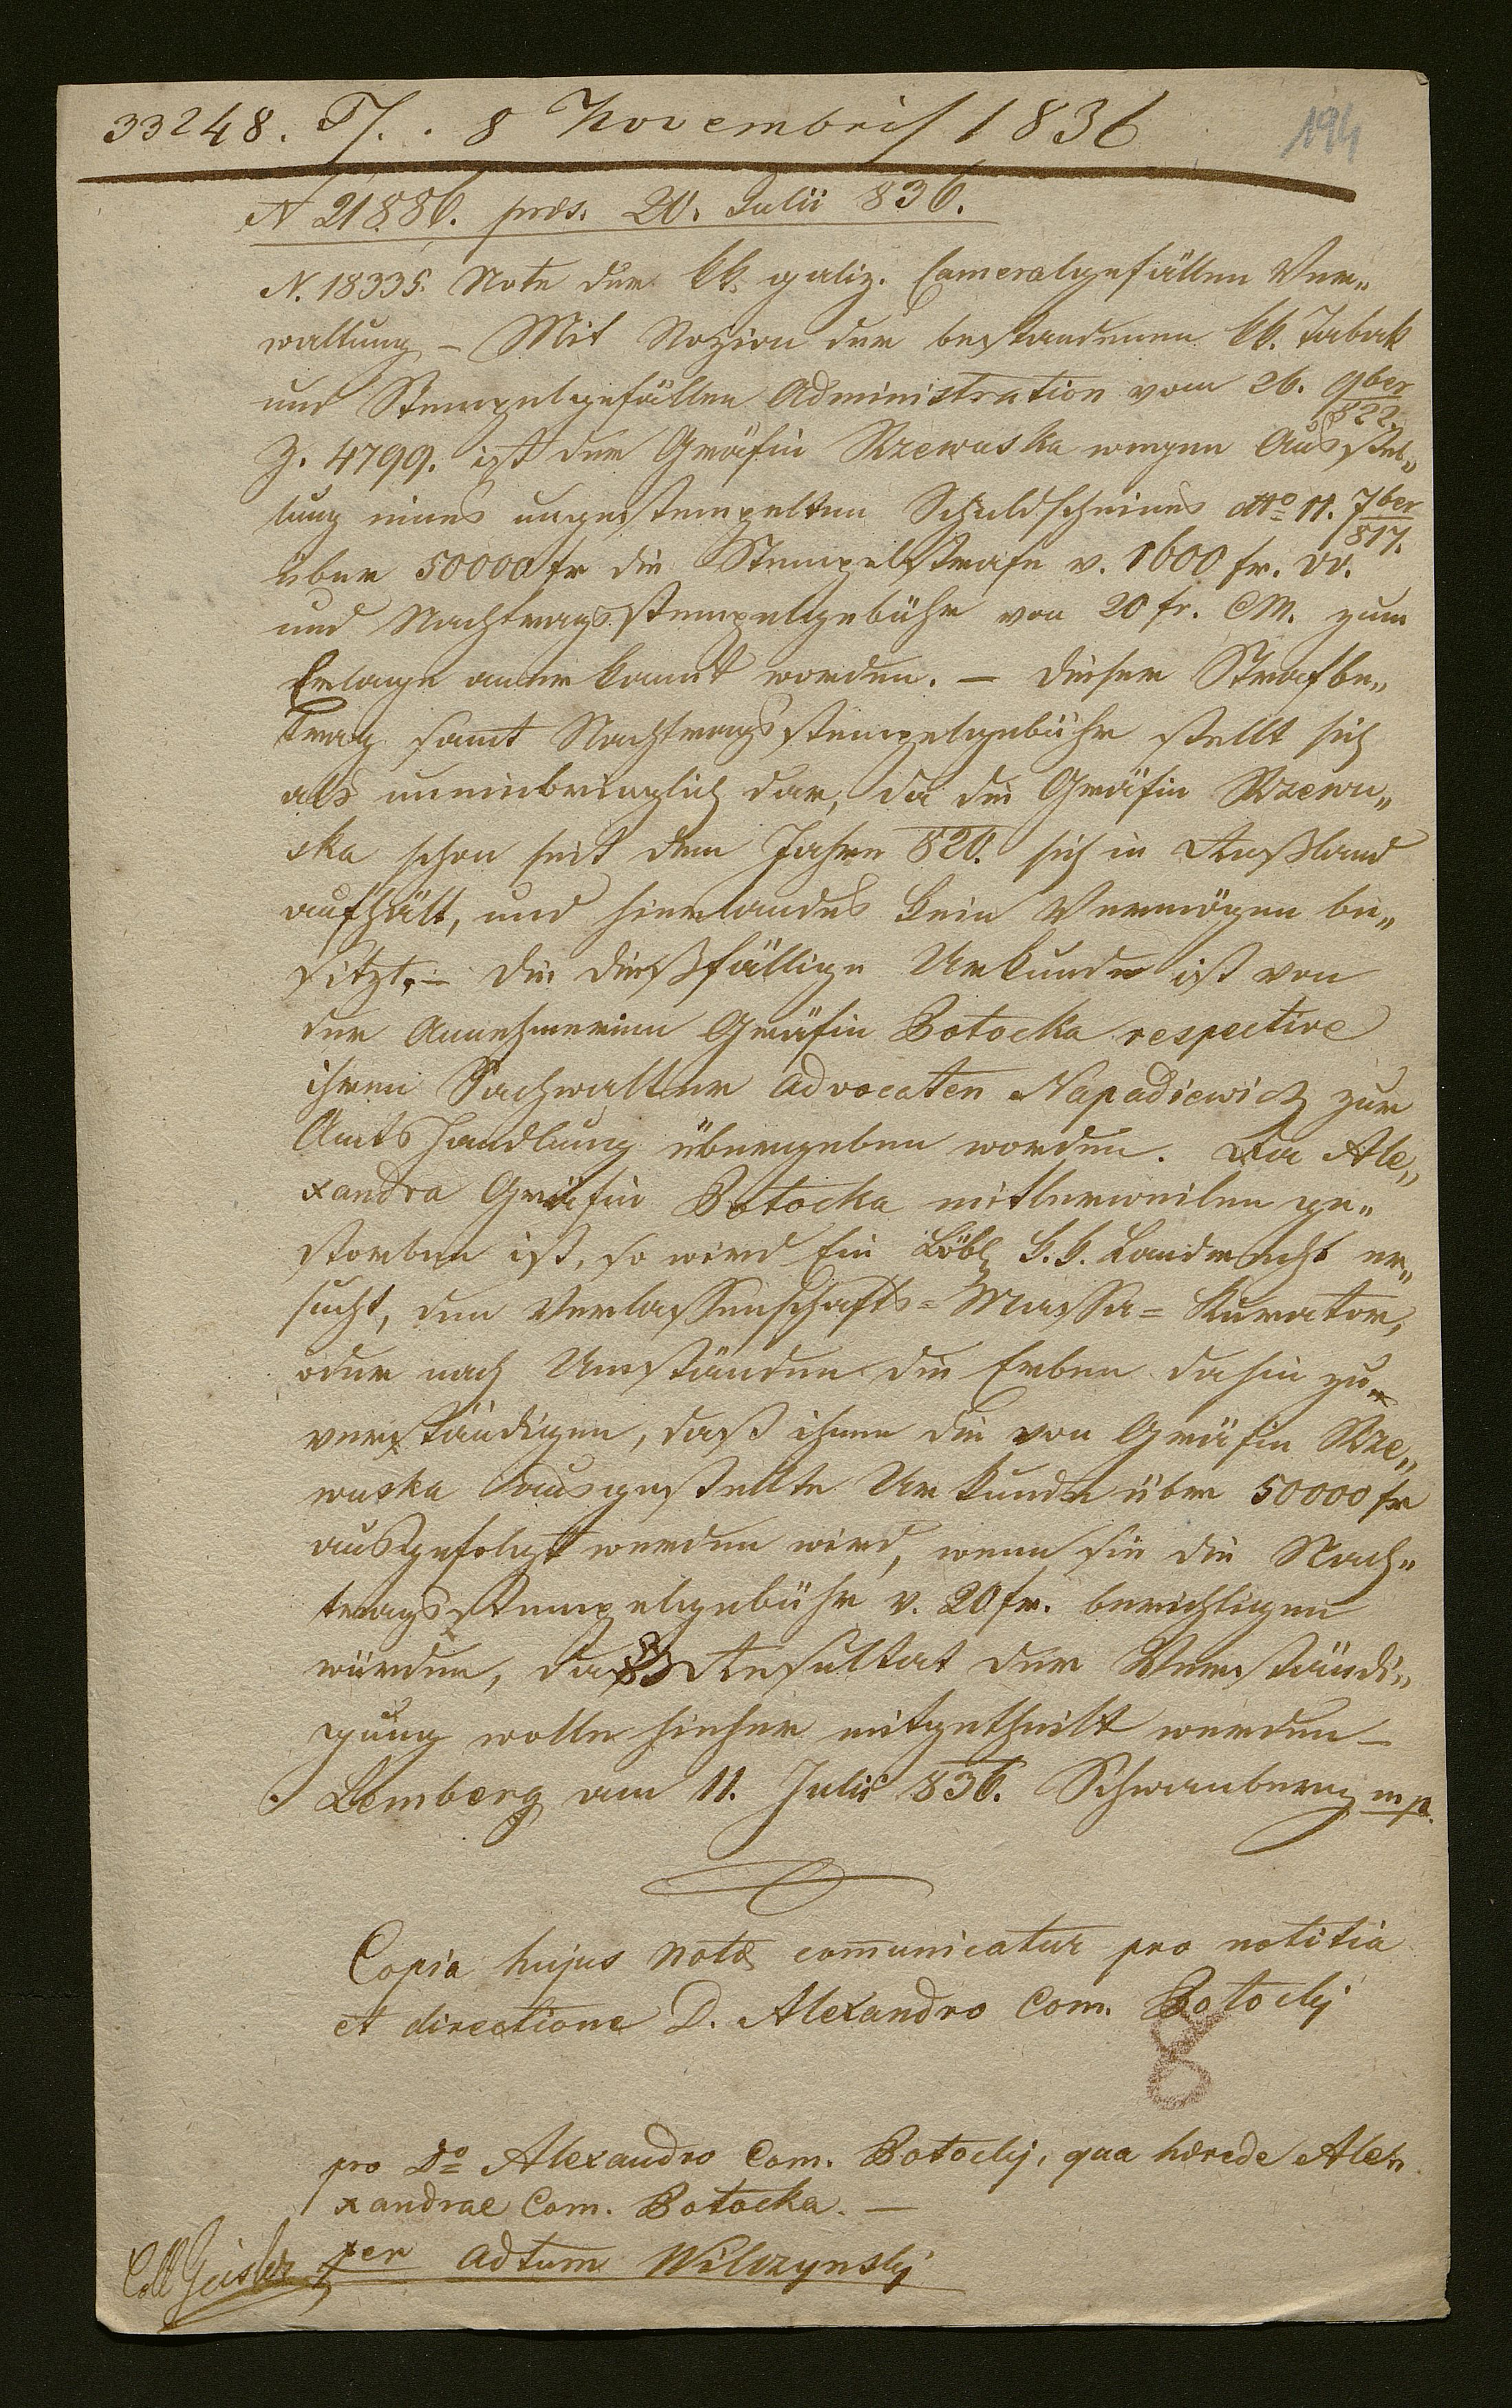 33248. T/. 8 Novembris 1836
194
N 21886. pres. 20. Julii 836.
N. 18335. Note der kk. galiz. Cameralgefällen Ver„
waltung – Mit Nozion der bestandenen kk. Tabak
und Stempelgefällen Administration vom 26. 9ber 822.
Z. 4799. ist der Gräfin Rzewuska wegen Ausstel„
lung eines ungestempelten Schuldscheines dtto 11. 7ber 817.
über 50000 fr die Stempelstrafe v. 1600 fr.
und Nachtragsstempelgebühr von 20 fr. CM. zum
Erlage anerkannt worden. – Dieser Strafbe„
trag samt Nachtragsstempelgebühr stellt sich
als uneinbringlich dar, da die Gräfin Rzewu„
ska schon seit dem Jahre 820. sich in Rußland
aufhält, und hierlandes kein Vermögen be„
sitzt. – Die dießfällige Urkunde ist von
der Annehmerinn Gräfin Botocka respective
ihrem Sachwalter Advocaten Napadiewicz zur
Amtshandlung übergeben worden. Da Ale„
xandra Gräfin Botocka mitlerweilen ge„
storben ist, so wird Ein Löbl k. k. Landrecht er„
sucht, den Verlassenschafts=Massa=Kurator,
oder nach Umständen die Erben dahin zu
verständigen, daß ihnen die von Gräfin Rze„
wuska ausgestellte Urkunde über 50000 fr
ausgefolgt werden wird, wenn sie die Nach„
tragsstempelgebühr v. 20 fr. berichtigen
würden, das Resultat der Verständi„
gung wolle hieher mitgetheilt werden –
Lemberg am 11. Julii 836. Schwanberg mp.
Copia hujus Notæ comunicatur pro notitia
et directione D. Alexandro Com. Botocky
8
pro Do Alexandro Com. Botocky, qua hærede Ale„
xandrae Com. Botocka. –
per Adtum Wilczynsky
Coll Geisler